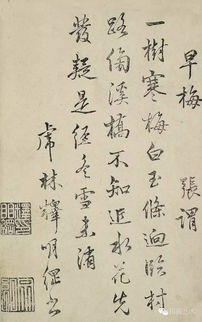 早梅 張謂
一樹寒梅白玉條迥臨村
路傍溪橋不知近水花先
發疑是經冬雪未消
虎林釋明繼書